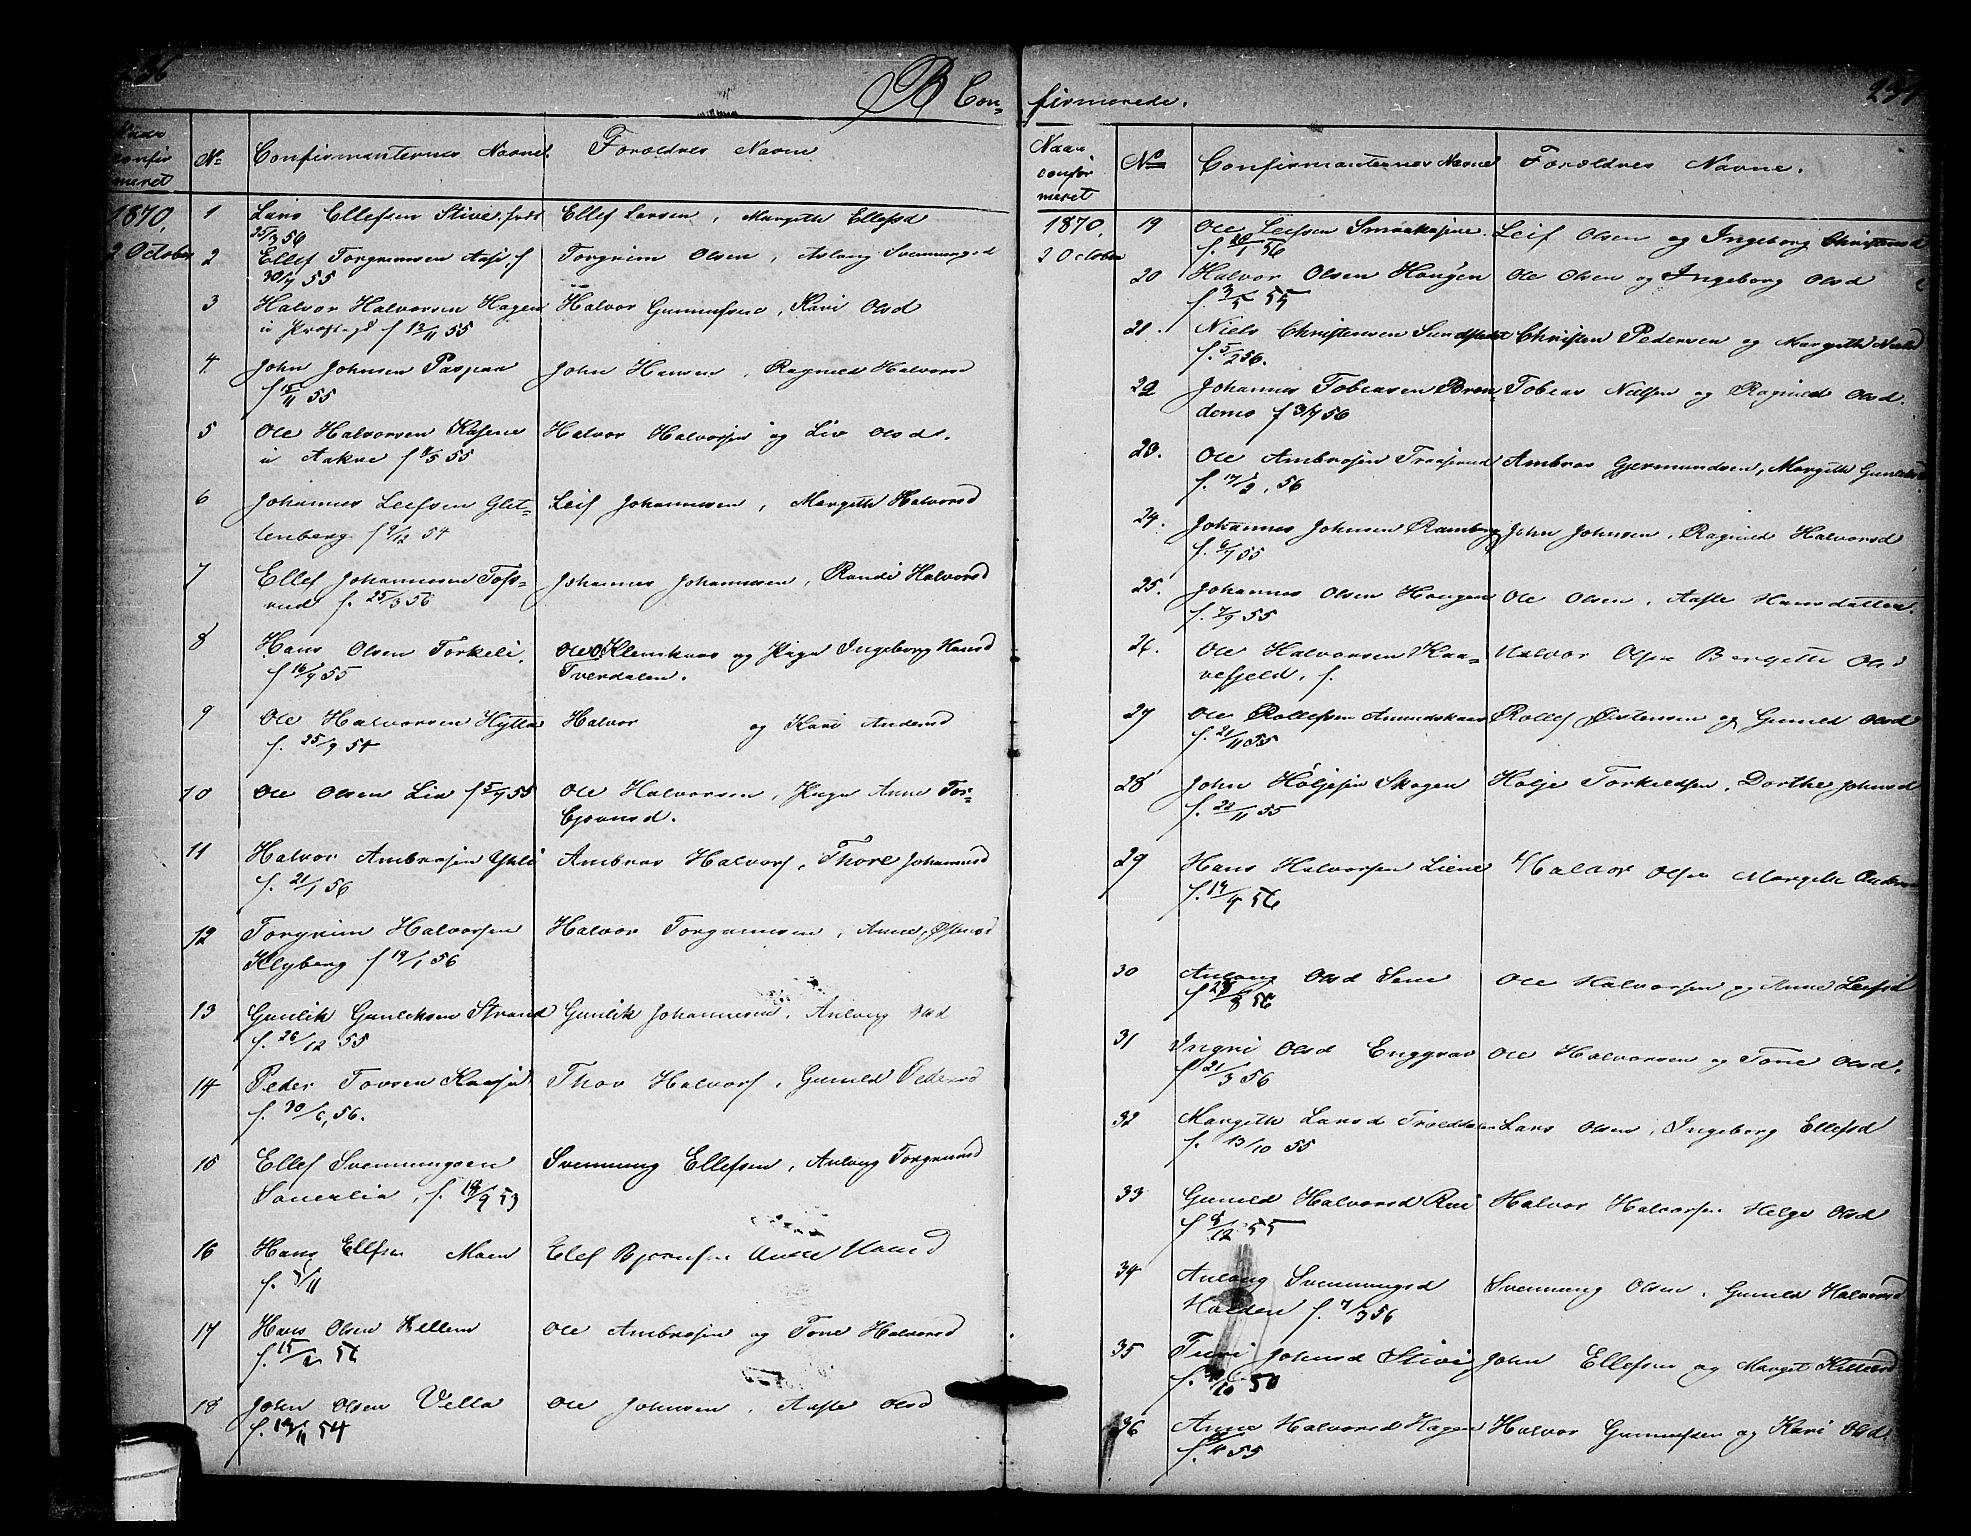 236
B Con-
Naar confirmeret
No
Confirmanternes Navne.
Forældres Navne
1870.
2 October
1 Lars Ellefsen Stivi, født Ellef Larsen, Margith Ellefsd
25/3 56
2 Ellef Torgrimsen Aase f Torgrim Olsen, Aslaug Svennungsd
30/7 55
3 Halvor Halvorsen Hagen Halvor Gunnufsen, Kari Olsd
u f 12/11 55
4 John Johnsen Paspaa John Hansen, Ragnild Halvorsd
f 15/11 55
5 Ole Halvorsen Kasene Halvor Halvorsen og Liv Olsd.
u Aakre f 4/5 55
6 Johannes Leifsen Glet- Leif Johannesen, Margith Halvorsd
lenberg f 9/12 54
7 Ellef Johannesen Tofs- Johannes Johannesen, Randi Halvorsd
rud f. 25/3 56
8 Hans Olsen Torkeli. Ole Klemskaas og Pige Ingeborg Hansd
f 16/9 55 Tverdalen.
9 Ole Halvorsen Hytta Halvor og Kari Andersd
f. 25/9 54
10 Ole Olsen Lia f 5/9 55 Ole Halvorsen, Pige Anne Tor-
bjørnsd.
11 Halvor Ambrosen Yhli Ambros Halvors, Thore Johannesd
f. 21/1 56
12 Torgrim Halvorsen Halvor Torgrimsen, Anne Østensd
Klyberg f 19/1 56
13 Gunlik Gunleksen Strand Gunlik Johannesen, Anlaug Olsd
f. 26/12 55
14 Peder Tovsen Kaasa Thov Halvors, Gunild Pedersd
f. 30/6, 56.
15 Ellef Svennungsen Svennung Ellefsen, Anlaug Torgrimsd
f. 19/9 53
16 Hans Ellfsen Moen Elef Bjørnsen Hansd
f. 3/11
17 Hans Olsen Kellem Ole Ambrosen og Tone Halvorsd
f. 15/2 56
18 John Olsen Vella Ole Johnsen, Aaste Olsd
f. 19/11 54
firmerede.
237
Naar confirmeret
No
Confirmanternes Navne
Forældres Navne.
1870.
2 October
19 Ole Leifsen Smaakasine. Leif Olsen og Ingeborg Christensd
f. /1 56
20 Halvor Olsen Haugen Ole Olsen og Ingeborg Olsd
f 3/5 55
21. Niels Christensen Sundsfeldt Christen Pedersen og Margith Nielsd
f. 5/2 56.
22 Johannes Tobeasen Bren- Tobeas Nielsen og Ragnild Olsd.
demo f 3/7 56
23. Ole Ambrosen Traaserud Ambros Gjermundsen, Margith Gunleksd.
f. 17/2, 56
24. Johannes Johnsen Ramberg John Johnsen, Ragnild Halvorsd
f. 6/7 55
25. Johannes Olsen Haugen Ole Olsen, Aaste Hansdatter.
f. 7/9 55
26. Ole Halvorsen Kaa- Halvor Olsen Bergette Olsd
vefjeld, f.
27 Ole Rollefsen Amundskaas Rollef Østensen og Gunild Olsd
f. 21/11 55
28 John Høljesen Skogen Holje Torkildsen, Dorthe Johnsd
f. 22/11 55
29 Hans Halvorsen Liene Halvor Olsen Margith Anders
f. 14/4 56
30 Anlaug Olsd Sem Ole Halvorsen og Anne Leifsd
f 23/8 56
31 Ingri Olsd Enggrav Ole Halvorsen og Tone Olsd.
f 21/3 56
32 Margith Larsd Træddalen Lars Olsen, Ingeborg Ellefsd
f. 13/10 55
33 Gunild Halvorsd Rui Halvor Halvorsen Helge Olsd
f 8/12 55
34 Anlaug Svennungsd Svennung Olsen, Gunild Halvorsd
Holden f. 7/3 56
35 Turi Johnsd Stivi John Ellefsen og Marget Kittelsd
f. /10 50
36 Anne Halvorsd Hagen Halvor Gunnufsen og Kari Olsd.
f. 55